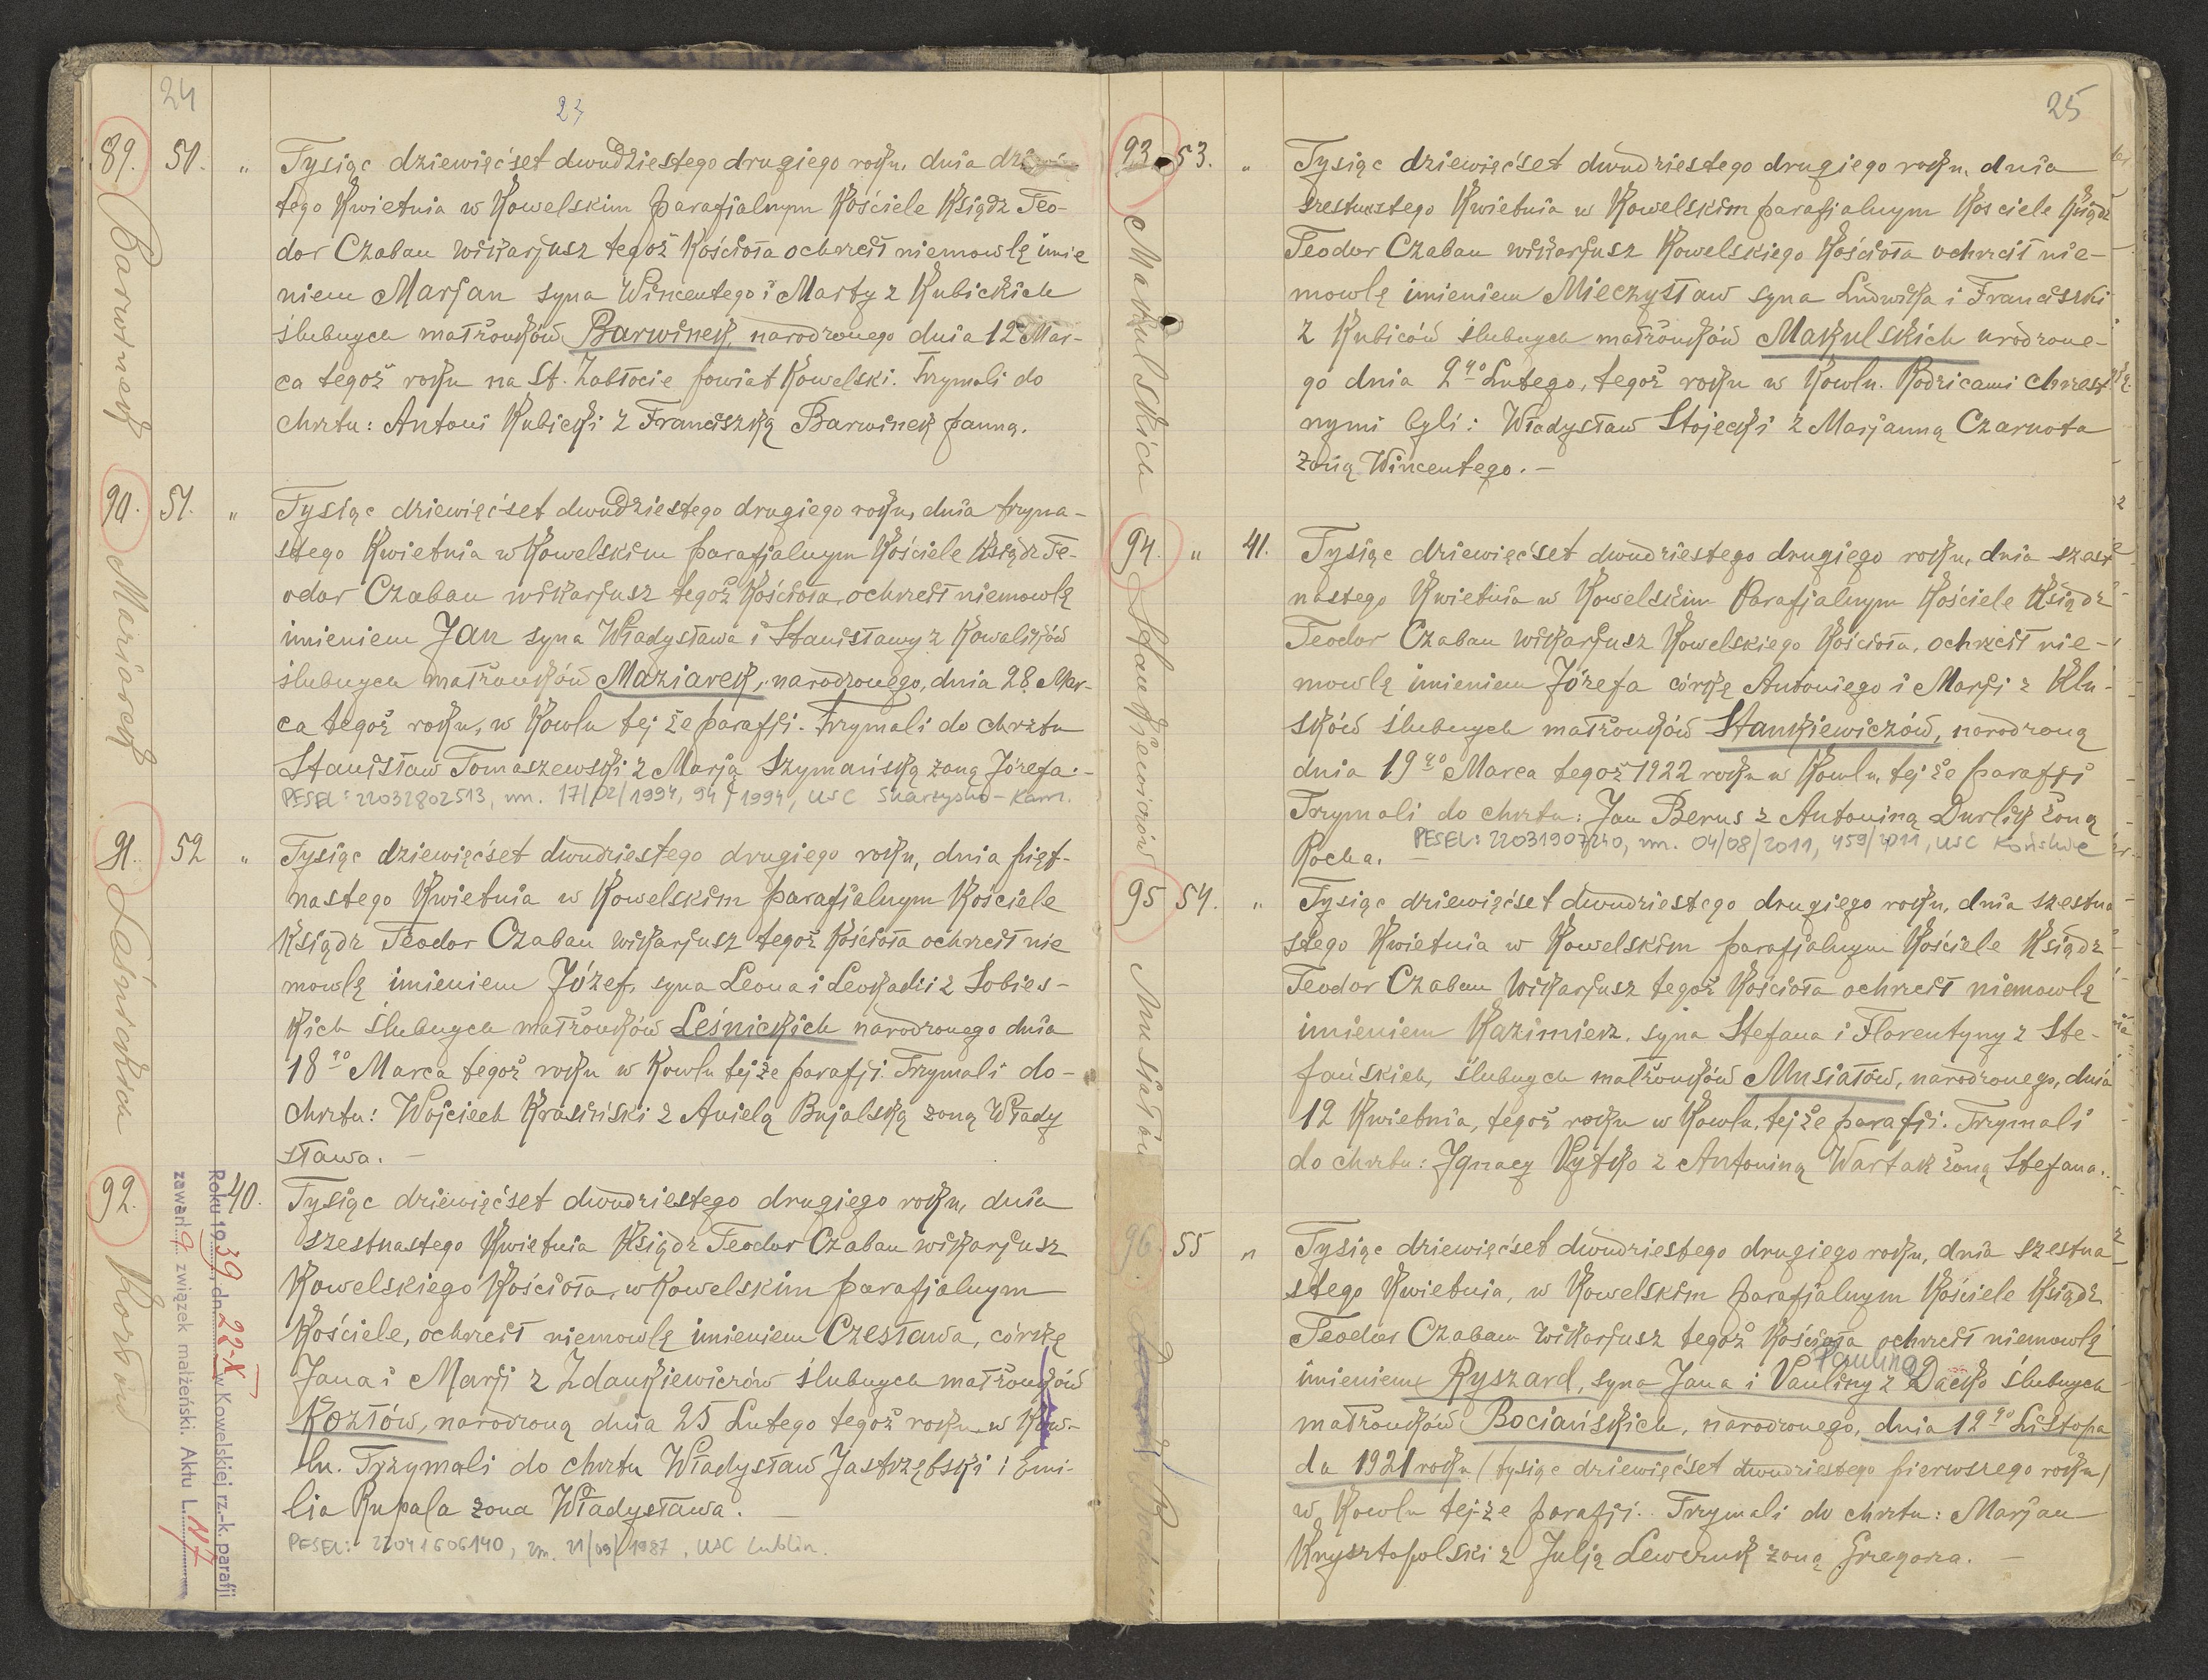 24
23
89.
50.
"
Tysiąc dziewięćset dwudziestego drugiego roku, dnia
tego Kwietnia w Kowelskim parafjalnym Kościele Ksiądz Teo-
dor Czaban wikarjusz tegoż Kościoła ochrzcił niemowlę imie
niem Marjan syna Wincentego i Marty z Kubickich
ślubnych małżonków Barwinek, narodzonego dnia 12 Mar-
ca tegoż roku na St. Zabłocie powiat Kowelski. Trzymali do
chrztu: Antoni Kubicki z Franciszką Barwinek panną.
Barwinek
90.
51.
"
Tysiąc dziewięćset dwudziestego drugiego roku, dnia trzyna-
stego Kwietnia w Kowelskim parafjalnym Kościele Ksiądz Te-
odor Czaban wikarjusz tegoż Kościoła, ochrzcił niemowlę
imieniem Jan syna Władysława i Stanisławy z Kowalików
ślubnych małżonków Maziarek, narodzonego, dnia 28 Mar-
ca tegoż roku, w Kowlu tej że parafji. Trzymali do chrztu
Stanisław Tomaszewski z Marją Szymańską żoną Józefa.-
PESEL: 22032802513, zm. 17/02/1994, 94/1994, USC Skarżysko-Kam.
Maziarek
91.
52
"
Tysiąc dziewięćset dwudziestego drugiego roku, dnia pięt-
nastego Kwietnia w Kowelskim parafjalnym Kościele
Ksiądz Teodor Czaban wikarjusz tegoż Kościoła ochrzcił nie
mowlę imieniem Józef, syna Leona i Leokadii z Sobies-
kich ślubnych małżonków Leśnickich narodzonego dnia
18go Marca tegoż roku w Kowlu tejże parafji. Trzymali do-
chrztu: Wojciech Krasiński z Anielą Bujalską żoną Włady
sława. -
Leśnickich
92.
40.
Tysiąc dziewięćset dwudziestego drugiego roku, dnia
szestnastego Kwietnia Ksiądz Teodor Czaban wikarjusz
Kowelskiego Kościoła, w Kowelskim parafjalnym
Kościele, ochrzcił niemowlę imieniem Czesława, córkę
Jana i Marji z Zdankiewiczów ślubnych małżonków
Kozłów, narodzoną dnia 25 Lutego tegoż roku w Kow-
lu. Trzymali do chrztu Władysław Jastrzębski i Emi-
lia Rupala żona Władysława. -
PESEL: 22041606140, zm. 21/09/1987, USC Lublin.
Kozłów
Roku 1939, dn. 22-X w Kowelskiej rz.-k. parafji
zawarł związek małżeński. Aktu L.
25
93
53.
"
Tysiąc dziewięćset dwudziestego drugiego roku, dnia
szestnastego Kwietnia w Kowelskim parafjalnym Kościele Ksiądz
Teodor Czaban wikarjusz Kowelskiego Kościoła ochrzcił nie-
mowlę imieniem Mieczysław syna Ludwika i Franciszki
z Kubiców ślubnych małżonków Makulskich urodzone-
go dnia 2go Lutego, tegoż roku w Kowlu. Rodzicami chrzest
nymi byli: Władysław Stojecki z Marjanną Czarnota
żoną Wincentego. -
Makulskich
94.
"
41.
Tysiąc dziewięćset dwudziestego drugiego roku, dnia szest
nastego Kwietnia w Kowelskim Parafjalnym Kościele Ksiądz
Teodor Czaban wikarjusz Kowelskiego Kościoła, ochrzcił nie-
mowlę imieniem Józefa córkę Antoniego i Marji z Klu-
sków ślubnych małżonków Stankiewiczów, narodzoną
dnia 19go Marca tegoż 1922 roku w Kowlu, tej że parafji
Trzymali do chrztu: Jan Berus z Antoniną Durlik żoną
Rocha. -
PESEL: 22031907240, zm. 04/08/2011, 459/2011, USC Końskie
Stankiewiczów
95
54.
"
Tysiąc dziewięćset dwudziestego drugiego roku, dnia szestna
stego Kwietnia w Kowelskim parafjalnym Kościele Ksiądz
Teodor Czaban wikarjusz tegoż Kościoła ochrzcił niemowlę
imieniem Kazimierz, syna Stefana i Florentyny z Ste-
fańskich, ślubnych małżonków Musiałów, narodzonego, dnia
12 Kwietnia, tegoż roku w Kowlu, tej że parafji. Trzymali
do chrztu: Ignacy Wytko z Antoniną Wartak żoną Stefana.
Musiałów
96
55
"
Tysiąc dziewięćset dwudziestego drugiego roku, dnia szestna
stego Kwietnia, w Kowelskim parafjalnym Kościele Ksiądz
Teodor Czaban wikarjusz tegoż Kościoła ochrzcił niemowlę
Pauliną
imieniem Ryszard, syna Jana i Pauliny z Dacko ślubnych
małżonków Bociańskich, narodzonego, dnia 12go Listopa
da 1921 roku (tysiąc dziewięćset dwudziestego pierwszego roku)
w Kowlu tej-że parafji. Trzymali do chrztu: Marjan
Krysztopolski z Julją Lewczuk żoną Grzegorza. -